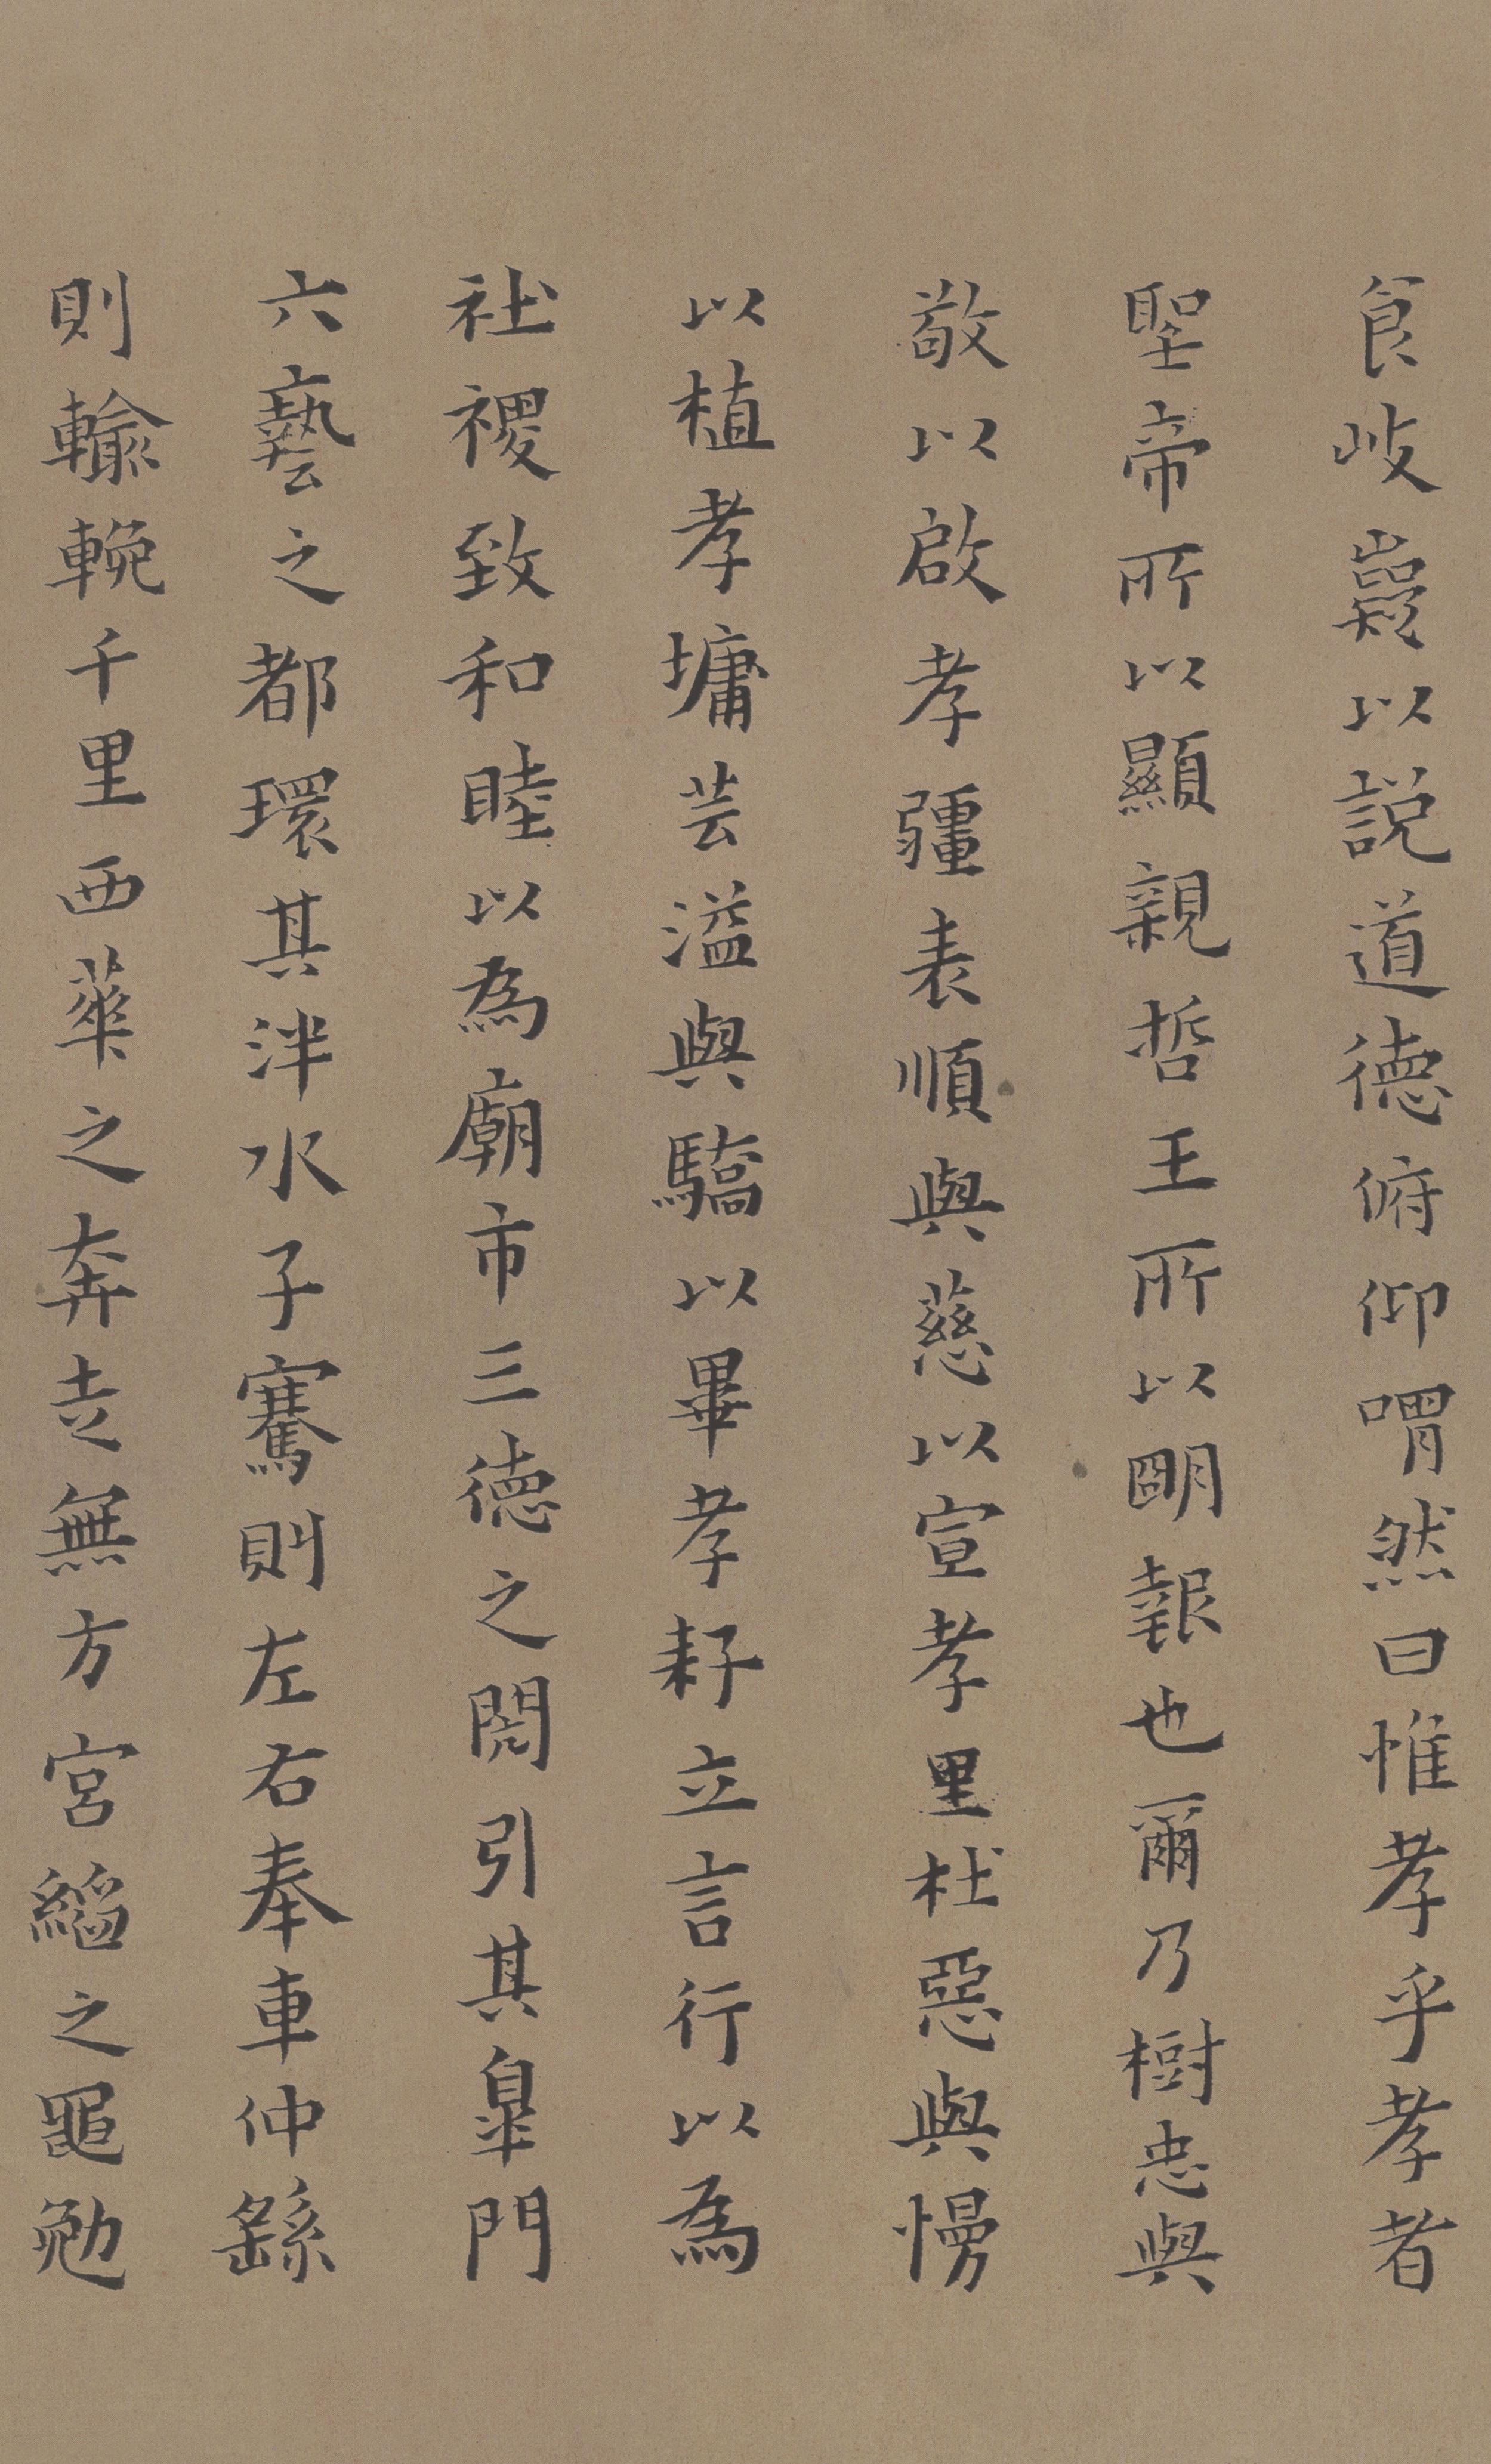 食岐嶷以説道德俯仰喟然曰惟孝乎孝者
聖帝所以顯親哲王所以朙報也爾乃樹忠與
敬以啟孝疆表順與慈以宣孝里杜惡與慢
以植孝墉芸溢與驕以畢孝耔立言行以為
社稷致和睦以為廟市三德之閎引其皐門
六藝之都環其泮水子騫則左右奉車仲繇
則輸輓千里西華之奔走無方宮縚之黽勉